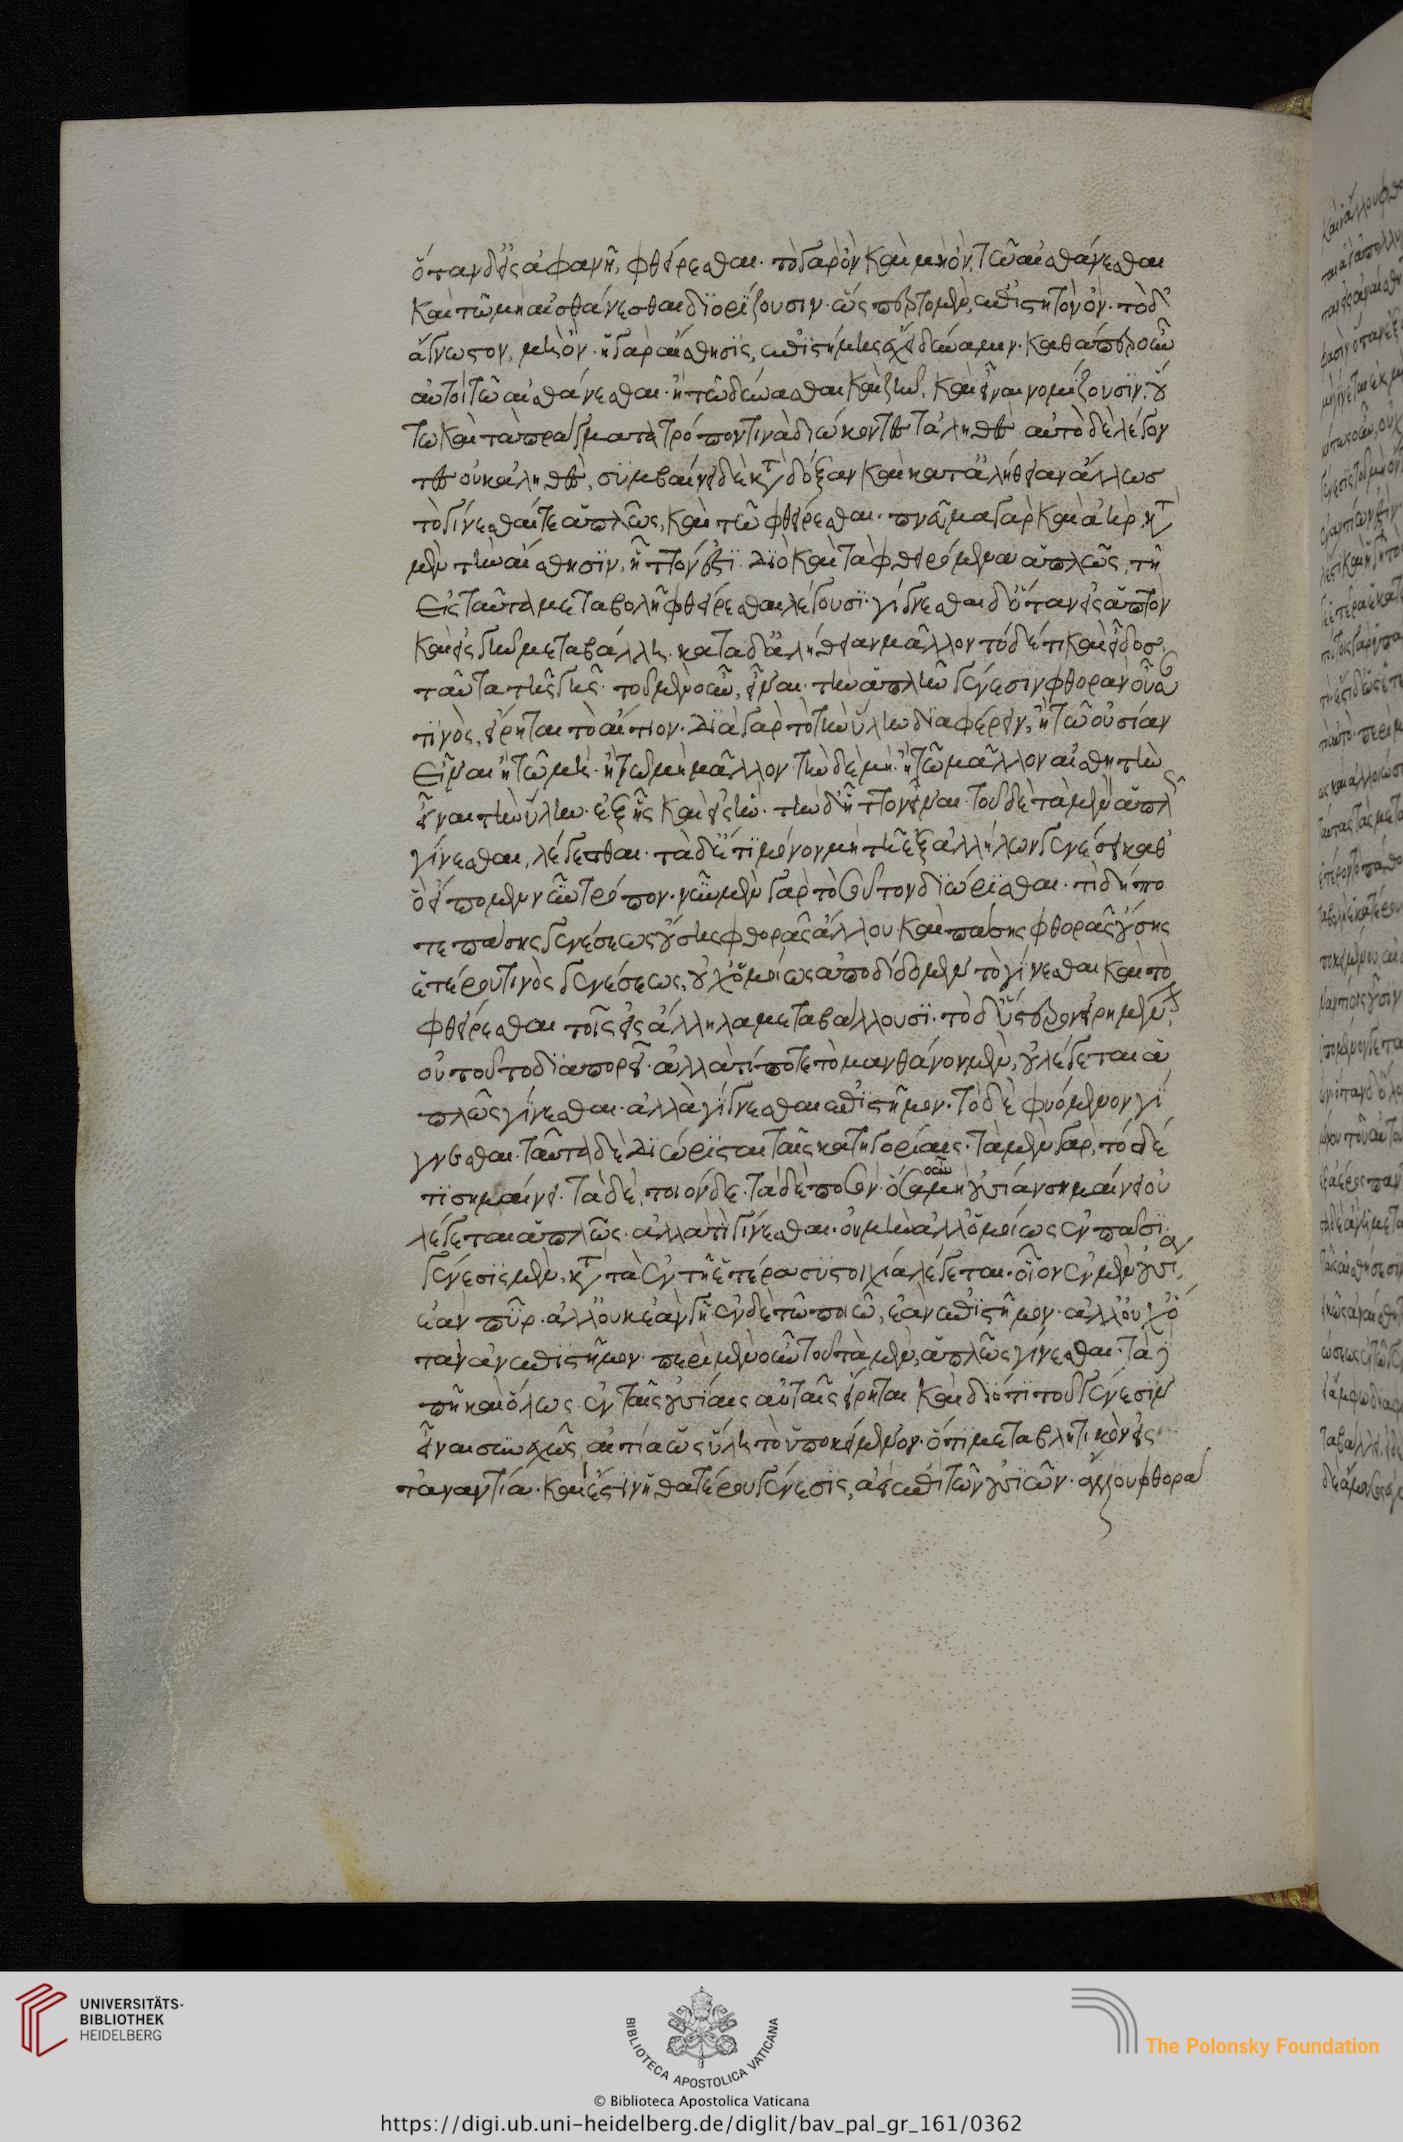 ὅταν δ' εἰς ἀφανῆ, φθείρεσθαι· τὸ γὰρ ὂν καὶ μὴ ὂν, τῶ αἰσθάνεσθαι
καὶ τῶ μὴ αἰσθάνεσθαι διορίζουσιν· ὥσπερ τὸ μὲν, ἐπιστητὸν ὄν· τὸ δ'
ἄγνωστον, μὴ ὄν· ἡ γὰρ αἴσθησις, ἐπιστήμης ἔχει δύναμιν· καθάπερ οὖν
αὐτοὶ τῶ αἰσθάνεσθαι· ἢ τῶ δύνασθαι καὶ ζῆν, καὶ εἶναι νομίζουσιν, οὕ
τω καὶ τὰ πράγματα τρόπον τινὰ διώκοντες τἀληθὲς αὐτὸ δὲ λέγον
τες οὐκ ἀληθὲς, συμβαίνει δὲ κατὰ δόξαν καὶ κατ' ἀλήθειαν ἄλλως
τὸ γίνεσθαί τε ἁπλῶς, καὶ τῶ φθείρεσθαι· πνεῦμα γὰρ καὶ ἀὴρ κατὰ
μὲν τὴν αἴσθησιν, ἧττόν ἐστι· διὸ καὶ τὰ φθειρόμενα ἁπλῶς, τῆ
εἰς ταῦτα μεταβολῆ φθείρεσθαι λέγουσι· γίγνεσθαι δ' ὅταν εἰς ἁπτὸν
καὶ εἰς γῆν μεταβάλλη· κατὰ δ' ἀλήθειαν μᾶλλον τόδέ τι καὶ εἶδος
ταῦτα τῆς γῆς· τοῦ μὲν οὖν, εἶναι τὴν ἁπλῆν γένεσιν φθορὰν οὖσαν
τινὸς, εἴρηται τὸ αἴτιον· διὰ γὰρ τὸ τὴν ὕλην διαφέρειν, ἢ τῶ οὐσίαν
εἶναι ἢ τῶ μή· ἢ τῶ μὴ μᾶλλον· τὴν δὲ μή· ἢ τῶ μᾶλλον αἰσθητὴν
εἶναι τὴν ὕλην· ἐξ ἧς καὶ εἰς ἣν· τὴν δ' ἧττον εἶναι· τοῦ δὲ τὰ μὲν ἁπλῶς
γίνεσθαι, λέγεσθαι· τὰ δέ τι μόνον μὴ τῆ ἐξ ἀλλήλων γενέσει καθ'
ὃ εἴπομεν νῦν τρόπον· νῦν μὲν γὰρ τοσοῦτον διώρισθαι· τί δήπο
τε πάσης γενέσεως οὔσης φθορᾶς ἄλλου· καὶ πάσης φθορᾶς οὔσης
ἑτέρου τινὸς γενέσεως, οὐχ ὁμοίως ἀποδίδομεν τὸ γίνεσθαι καὶ τὸ
φθείρεσθαι τοῖς εἰς ἄλληλα μεταβάλλουσι· τὸ δ' ὕστερον εἰρημένον,
οὐ τοῦτο διαπορεῖ· ἀλλὰ τί ποτε τὸ μανθάνον μὲν, οὐ λέγεται ἁ
πλῶς γίνεσθαι· ἀλλὰ γίγνεσθαι ἐπιστῆμον· τὸ δὲ φυόμενον γί
γνεσθαι· ταῦτα δὲ διώρισται ταῖς κατηγορίαις· τὰ μὲν γὰρ, τόδέ
τι σημαίνει· τὰ δὲ, ποιόνδε· τὰ δὲ ποσόν· ὅσα οὖν μὴ οὐσίαν σημαίνει οὐ
λέγεται ἁπλῶς· ἀλλὰ τὶ γίνεσθαι· οὐ μὴν ἀλλ' ὁμοίως ἐν πᾶσι
γένεσις μὲν, κατὰ τὰ ἐν τῆ ἑτέρα συστοιχία λέγεται· οἷον ἐν μὲν οὐσίαν,
ἐὰν πῦρ· ἀλλ' οὐκ ἐὰν γῆ· ἐν δὲ τῶ ποιῶ, ἐὰν ἐπιστῆμον· ἀλλ' οὐχ ὅ
ταν ἀνεπιστῆμον· περὶ μὲν οὖν τοῦ τὰ μὲν, ἁπλῶς γίνεσθαι· τὰ δὲ
μὴ καὶ ὅλως ἐν ταῖς οὐσίαις αὐταῖς εἴρηται· καὶ διότι τοῦ γένεσιν
εἶναι συνεχῶς αἰτία ὡς ὕλη τὸ ὑποκείμενον· ὅτι μεταβλητικὸν εἰς
τἀναντία· καὶ ἔστιν ἡ θατέρου γένεσις, ἀεὶ ἐπὶ τῶν οὐσιῶν· ἄλλου φθορά
UNIVERSITÄTS-
BIBLIOTHEK
HEIDELBERG
BIBLIOTECA APOSTOLICA VATICANA
© Biblioteca Apostolica Vaticana
The Polonsky Foundation
https://digi.ub.uni-heidelberg.de/diglit/bav_pal_gr_161/0362